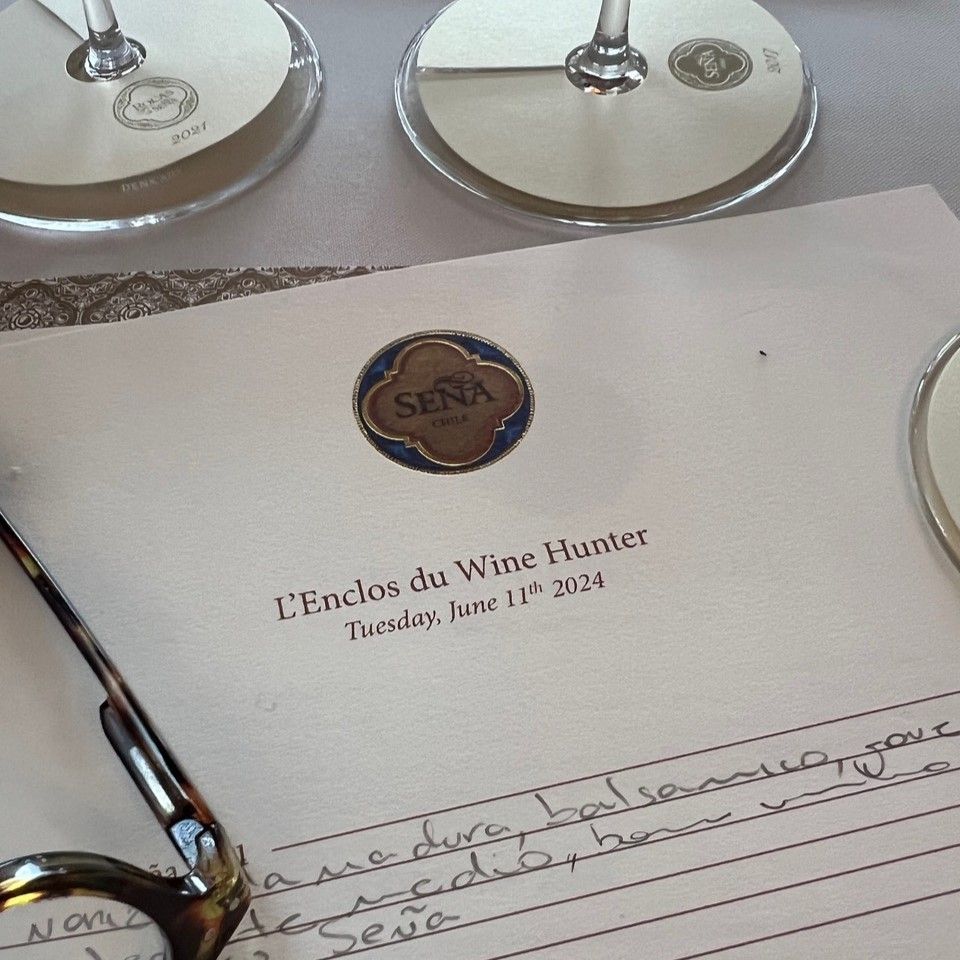 ROCAS
DE SEÑA
2021
DENK ART
SEÑA
2017
SEÑA
CHILE
L'Enclos du Wine Hunter
Tuesday, June 11th 2024
madura, balsamico,
medio, bom vinho
Seña